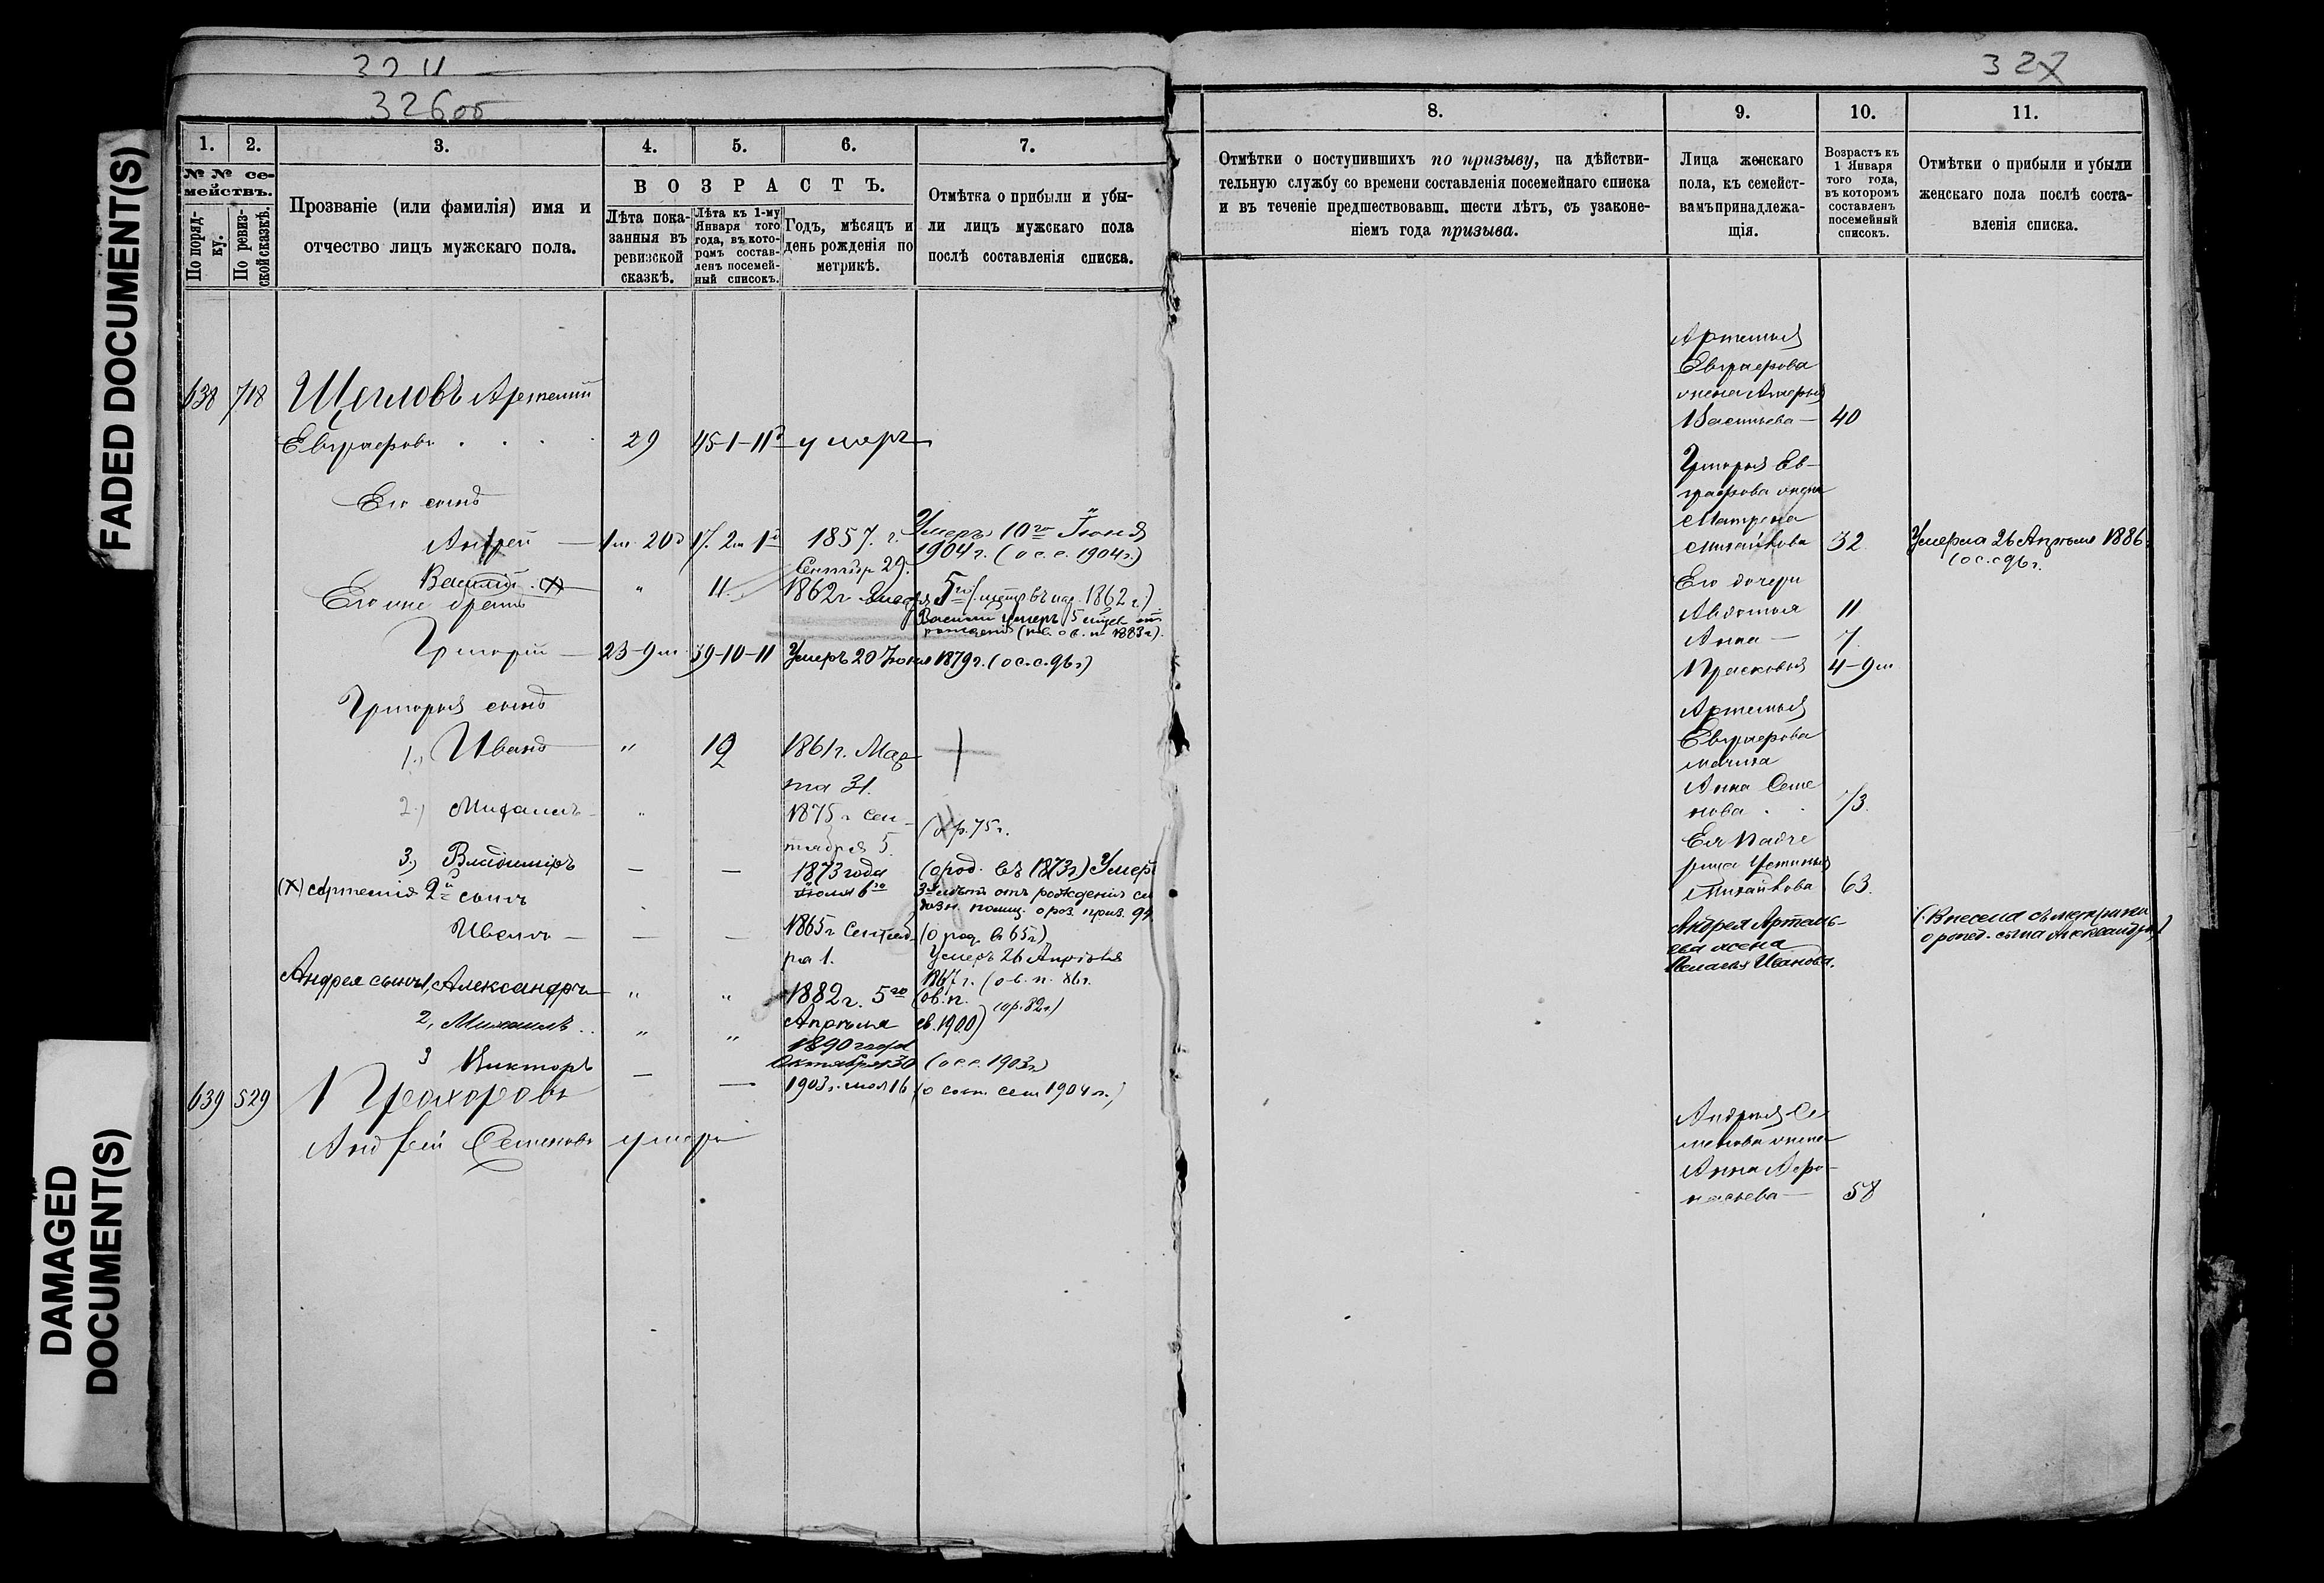 FADED DOCUMENT(S)
DAMAGED
DOCUMENT(S)
324
326об
1. 2. 3. 4. 5. 6. 7.
№ № се-
мействъ.
По поряд-
ку.
По ревиз-
ской сказкѣ.
Прозваніе (или фамилія) имя и
отчество лицъ мужскаго пола.
ВОЗРАСТЪ.
Лѣта пока-
занныя въ
ревизской
сказкѣ.
Лѣта къ 1-му
Января того
года, въ кото-
ромъ состав-
ленъ посемей-
ный списокъ.
Годъ, мѣсяцъ и
день рожденія по
метрикѣ.
Отмѣтка о прибыли и убы-
ли лицъ мужскаго пола
послѣ составленія списка.
638 718 Щегловъ Артемий
Евграфовъ 29 45-1-11д умеръ
Его сынъ
Андрей 1м. 20д 17. 2м 1д 1857. г.
Сентябр 29.
Умеръ 10го Іюня
1904 г. (о с. с. 1904 г.)
Василій (х) " 11. 1862 г.
Василий умеръ 5
Его же братъ
Григорій 23-9м 39-10-11 Умеръ 20 Іюня 1879 г. (о с. с. 96 г)
Григорья сынъ
1., Иванъ " 12 1861 г. Мар
та 31.
2.) Михаилъ " 1875 г. Сен-
тября 5. (о р. 75 г.
3.) Владиміръ — — 1873 года
Іюля 6го
(о род. въ 1873 г) Умеръ
(х) Артемія 2й сынъ
Иванъ — — — 1865 г. Сентяб-
ря 1. (о род. в 65 г)
Умеръ 26 Апрѣля
1867 г. (о в. п. 86 г.
Андрея сынъ 1, Александръ " " 1882 г. 5го
Апрѣля (ов. п.
св. 1900) (ор. 82 г)
2, Михаилъ " " 1890 года
Октября 30 (о с с. 1903 г)
3 Викторъ — — 1903 г. мая 16 (о сост. сем 1904 г.)
639 529 Прохоровъ
Андрей Семеновъ умеръ
327
8. 9. 10. 11.
Отмѣтки о поступившихъ по призыву, на дѣйстви-
тельную службу со времени составленія посемейнаго списка
и въ теченіе предшествовавш. шести лѣтъ, съ узаконе-
ніемъ года призыва.
Лица женскаго
пола, къ семейст-
вамъ принадлежа-
щія.
Возрастъ къ
1 Января
того года,
въ которомъ
составленъ
посемейный
списокъ.
Отмѣтки о прибыли и убыли
женскаго пола послѣ соста-
вленія списка.
Артемья
Евграфова
жена
Васильева — 40
Григорья Ев-
графова жена
Матрена
Михайлова 32. Умерла 26 Апрѣля 1886.
(о с. с 96 г.
Его дочери
Авдотья 11
Анна — 7.
Прасковья 4-9м
Артемья
Евграфова
мачиха
Анна Семе
нова 73.
Ея падче
рица Устинья
Михайлова 63.
Андрея Артемь-
ева жена
Иванова. (Внесена съ метрики
о рожд. сына Александра)
Андрея Се
менова жена
Анна Афо-
насьева — 58